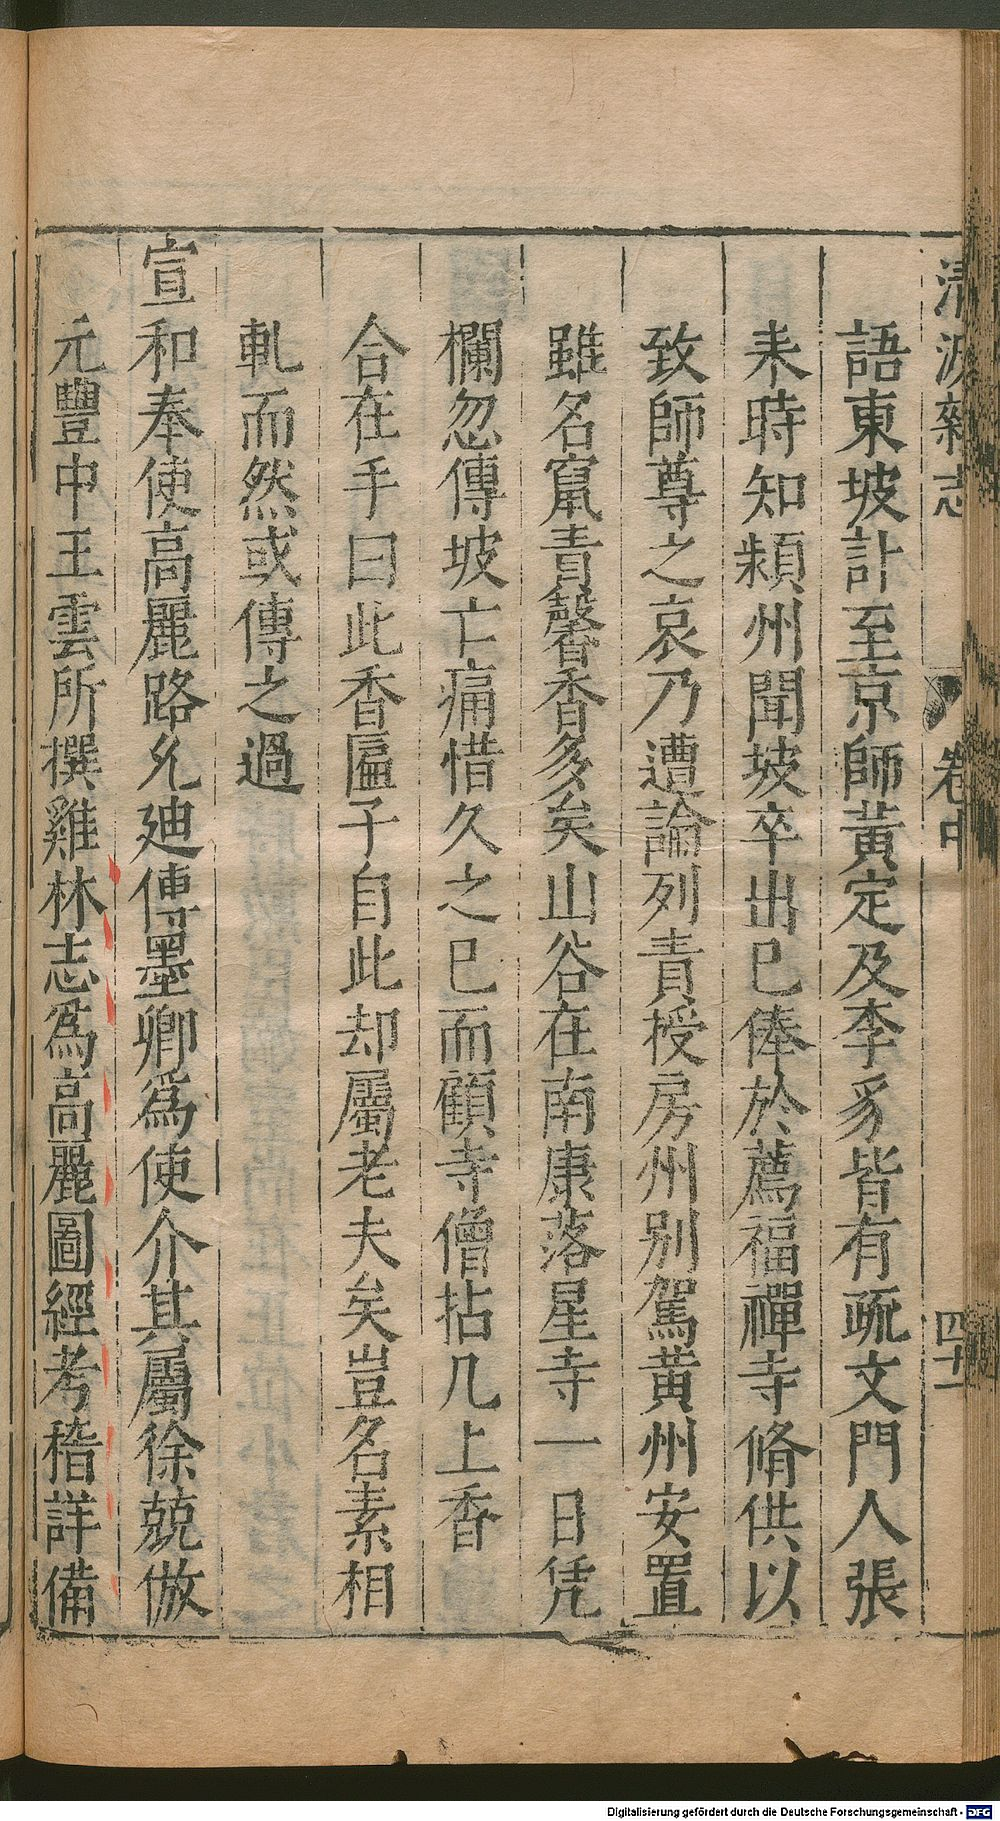 清波雜志 卷中 四十一
語東坡訃至京師黃定及李豸皆有疏文門人張
耒時知潁州聞坡卒出已俸於薦福禪寺脩供以
致師尊之哀乃遭論列責授房州別駕黃州安置
雖名竄責馨香多矣山谷在南康落星寺一日凭
欄忽傳坡亡痛惜久之已而顧寺僧拈几上香
合在手曰此香匾子自此却屬老夫矣豈名素相
軋而然或傳之過
宣和奉使高麗路允迪傅墨卿爲使介其屬徐兢倣
元豐中王雲所撰雞林志爲高麗圖經考稽詳備
Digitalisierung gefördert durch die Deutsche Forschungsgemeinschaft - DFG